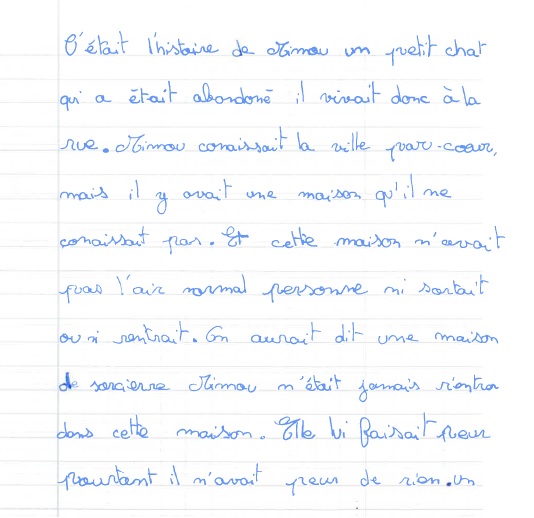 C'était l'histoire de Mimou un petit chat
qui a était abandoné il vivait donc à la
rue. Mimou conaissait la ville par-cœur,
mais il y avait une maison qu'il ne
conaissait pas. Et cette maison n'avait
pas l'air normal personne ni sortait
ou ni rentrait. On aurait dit une maison
de sorcierre Mimou n'était jamais rentra
dans cette maison. Elle lui faisait peur
pourtant il n'avait peur de rien. un